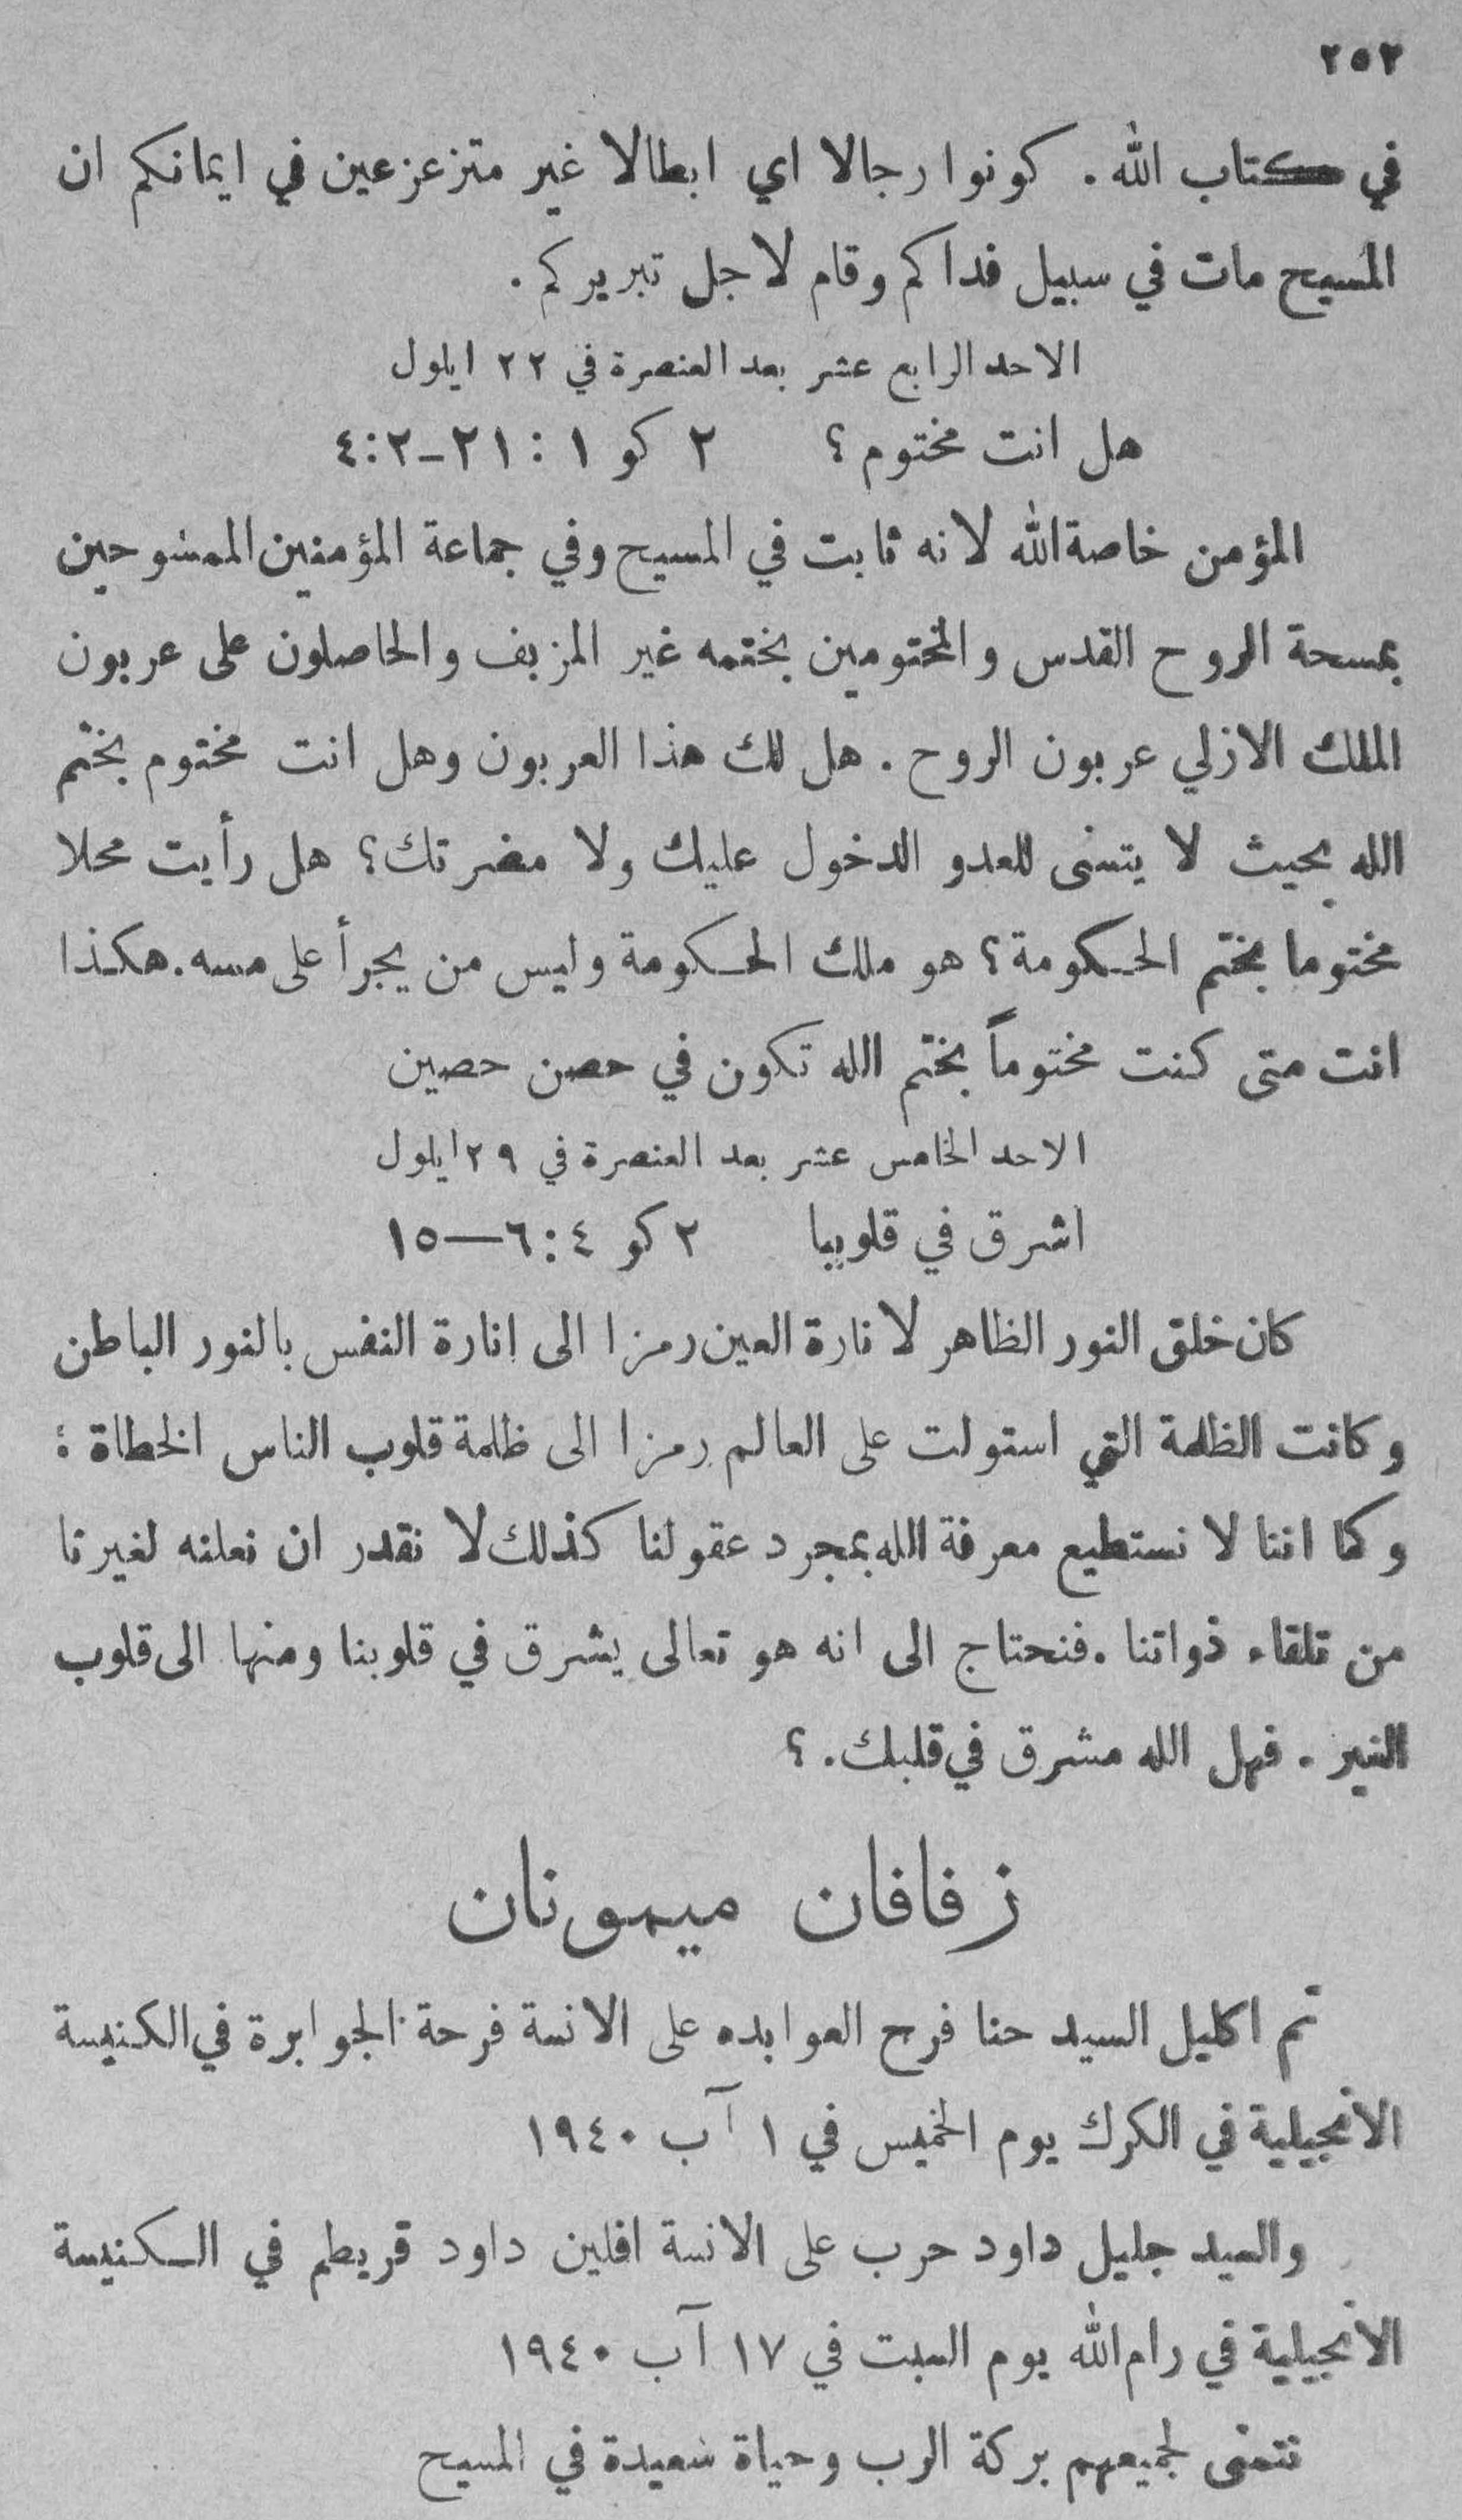 ٢٥٢
في كتاب الله . كونوا رجالا اي ابطالا غير متزعزعين في ايمانكم ان
المسيح مات في سبيل فداكم وقام لاجل تبريركم .
الاحد الرابع عشر بعد العنصرة في ٢٢ ايلول
هل انت مختوم ؟ ٢ كو ١ : ٢١-٤:٢
المؤمن خاصة الله لانه ثابت في المسيح وفي جماعة المؤمنين الممسوحين
بمسحة الروح القدس والمختومين بختمه غير المزيف والحاصلون على عربون
الملك الازلي عربون الروح . هل لك هذا العربون وهل انت مختوم بختم
الله بحيث لا يتسنى للعدو الدخول عليك ولا مضرتك؟ هل رأيت محلا
مختوما بختم الحكومة ؟ هو ملك الحكومة وليس من يجرأ على مسه . هكذا
انت متى كنت مختوماً بختم الله تكون في حصن حصين
الاحد الخامس عشر بعد العنصرة في ٢٩ ايلول
اشرق في قلوبيا ٢ كو ٤ :٦—١٥
كان خلق النور الظاهر لانارة العين رمزا الى انارة النفس بالنور الباطن
وكانت الظلمة التي استولت على العالم رمزا الى ظلمة قلوب الناس الخطاة :
وكما اننا لا نستطيع معرفة الله بمجرد عقولنا كذلك لا نقدر ان نعلنه لغيرنا
من تلقاء ذواتنا . فنحتاج الى انه هو تعالى يشرق في قلوبنا ومنها الى قلوب
الغير . فهل الله مشرق في قلبك . ؟
زفافان ميمونان
تم اكليل السيد حنا فرح العوابده على الانسة فرحة الجوابرة في الكنيسة
الانجيلية في الكرك يوم الخميس في ١ آب ١٩٤٠
والسيد جليل داود حرب على الانسة افلين داود قريطم في الكنيسة
الانجيلية في رام الله يوم السبت في ١٧ آب ١٩٤٠
نتمنى لجميعهم بركة الرب وحياة سعيدة في المسيح